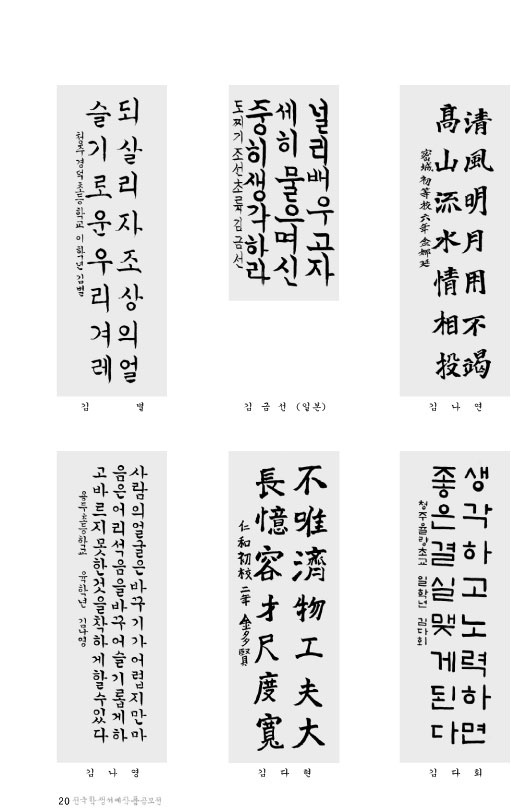 되살리자조상의얼
슬기로운우리겨레
청주경덕초등학교 이학년 김별
김 별
널리배우고자
세히물으며신
중히생각하라
도찌기조선초륙김금선
김 금 선 (일본)
清風明月用不竭
高山流水情相投
密城初等校 六年 金娜延
김 나 연
사람의얼굴은바꾸기가어렵지만마
음은어리석음을바꾸어슬기롭게하
고바르지못한것을착하게할수있다
초등학교 김나영
김 나 영
不唯濟物工夫大
長憶容才尺度寬
仁和初校 二年 金多賢
김 다 현
생각하고노력하면
좋은결실맺게된다
청주율량초교 일학년 김다회
김 다 회
20 전국학생서예작품공모전